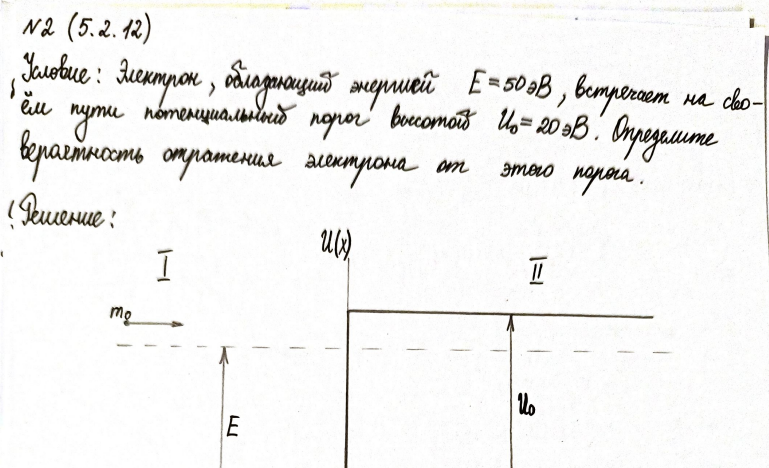 N2 (5.2.12)
Условие: Электрон, обладающий энергией E = 50 эВ, встречает на сво-
ём пути потенциальный порог высотой U₀ = 20 эВ. Определите
вероятность отражения электрона от этого порога.
Решение:
U(x)
I
II
m₀
U₀
E